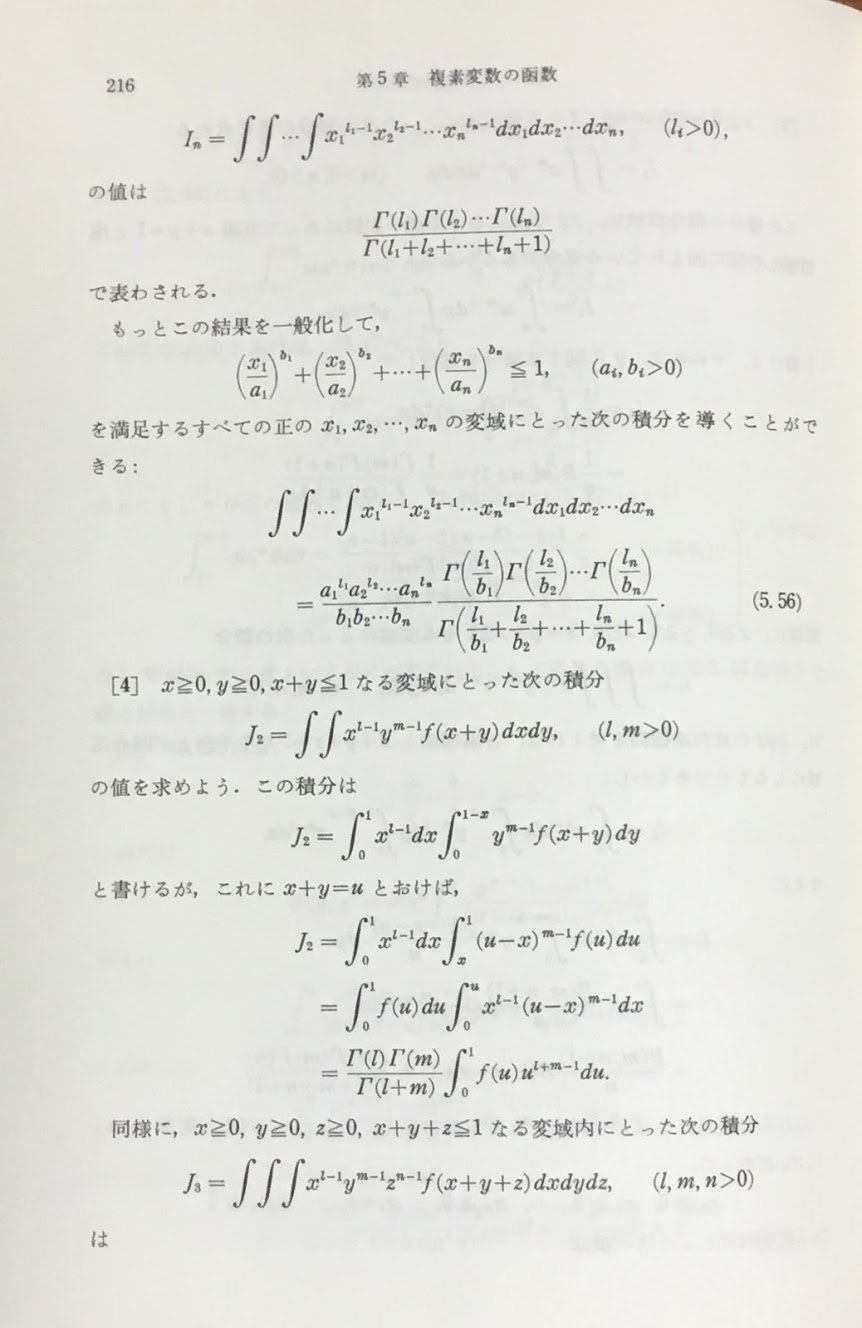 216
第5章 複素変数の函数
Iₙ = ∫∫⋯∫x₁^{l₁−1}x₂^{l₂−1}⋯xₙ^{lₙ−1}dx₁dx₂⋯dxₙ, (lᵢ>0),
の値は
Γ(l₁)Γ(l₂)⋯Γ(lₙ) / Γ(l₁+l₂+⋯+lₙ+1)
で表わされる.
もっとこの結果を一般化して,
(x₁/a₁)^{b₁}+(x₂/a₂)^{b₂}+⋯+(xₙ/aₙ)^{bₙ} ≦ 1, (aᵢ, bᵢ>0)
を満足するすべての正の x₁, x₂, ⋯, xₙ の変域にとった次の積分を導くことがで
きる:
∫∫⋯∫x₁^{l₁−1}x₂^{l₂−1}⋯xₙ^{lₙ−1}dx₁dx₂⋯dxₙ
= a₁^{l₁}a₂^{l₂}⋯aₙ^{lₙ} / b₁b₂⋯bₙ Γ(l₁/b₁)Γ(l₂/b₂)⋯Γ(lₙ/bₙ) / Γ(l₁/b₁+l₂/b₂+⋯+lₙ/bₙ+1). (5.56)
[4] x≧0, y≧0, x+y≦1 なる変域にとった次の積分
J₂ = ∫∫x^{l−1}y^{m−1}f(x+y)dxdy, (l, m>0)
の値を求めよう. この積分は
J₂ = ∫₀^{1} x^{l−1}dx∫₀^{1−x} y^{m−1}f(x+y)dy
と書けるが, これに x+y=u とおけば,
J₂ = ∫₀^{1} x^{l−1}dx∫ₓ^{1} (u−x)^{m−1}f(u)du
= ∫₀^{1} f(u)du∫₀^{u} x^{l−1}(u−x)^{m−1}dx
= Γ(l)Γ(m) / Γ(l+m) ∫₀^{1} f(u)u^{l+m−1}du.
同様に, x≧0, y≧0, z≧0, x+y+z≦1 なる変域内にとった次の積分
J₃ = ∫∫∫x^{l−1}y^{m−1}z^{n−1}f(x+y+z)dxdydz, (l, m, n>0)
は